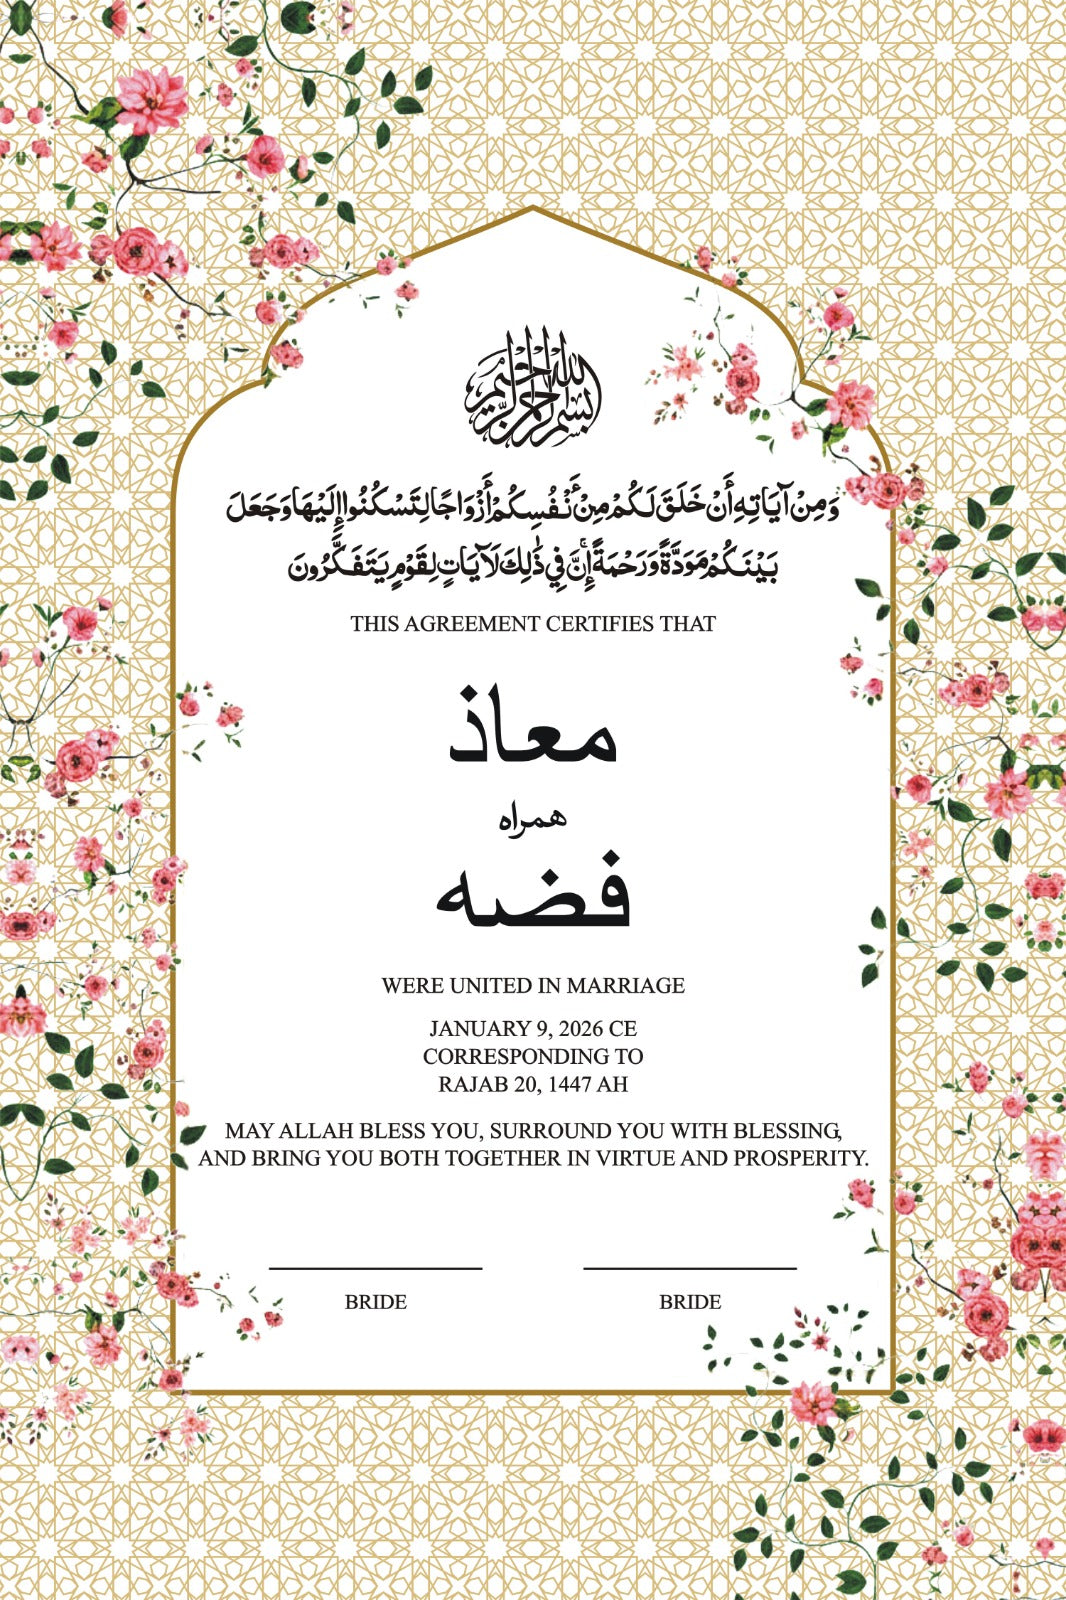 بسم الله الرحمن الرحيم
وَمِنْ آيَاتِهِ أَنْ خَلَقَ لَكُمْ مِنْ أَنْفُسِكُمْ أَزْوَاجًا لِتَسْكُنُوا إِلَيْهَا وَجَعَلَ
بَيْنَكُمْ مَوَدَّةً وَرَحْمَةً إِنَّ فِي ذَٰلِكَ لَآيَاتٍ لِقَوْمٍ يَتَفَكَّرُونَ
THIS AGREEMENT CERTIFIES THAT
معاذ
همراه
فضه
WERE UNITED IN MARRIAGE
JANUARY 9, 2026 CE
CORRESPONDING TO
RAJAB 20, 1447 AH
MAY ALLAH BLESS YOU, SURROUND YOU WITH BLESSING,
AND BRING YOU BOTH TOGETHER IN VIRTUE AND PROSPERITY.
BRIDE BRIDE